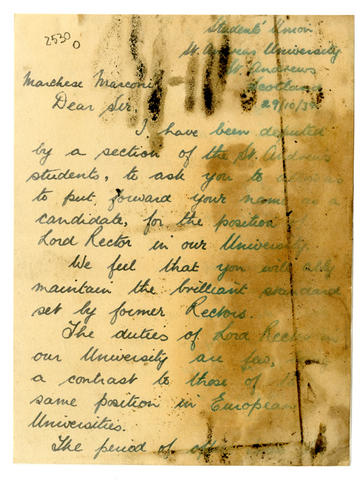 2530
Students' Union
St. Andrews University
St. Andrews
Scotland
29/10/3
Marchese Marconi
Dear Sir,
I have been deputed
by a section of the St. Andrews
students, to ask you to
to put forward your name as a
candidate, for the position of
Lord Rector in our University.
We feel that you will ably
maintain the brilliant standard
set by former Rectors.
The duties of Lord Rector in
our University are few,
a contrast to those of the
same position in European
Universities.
The period of